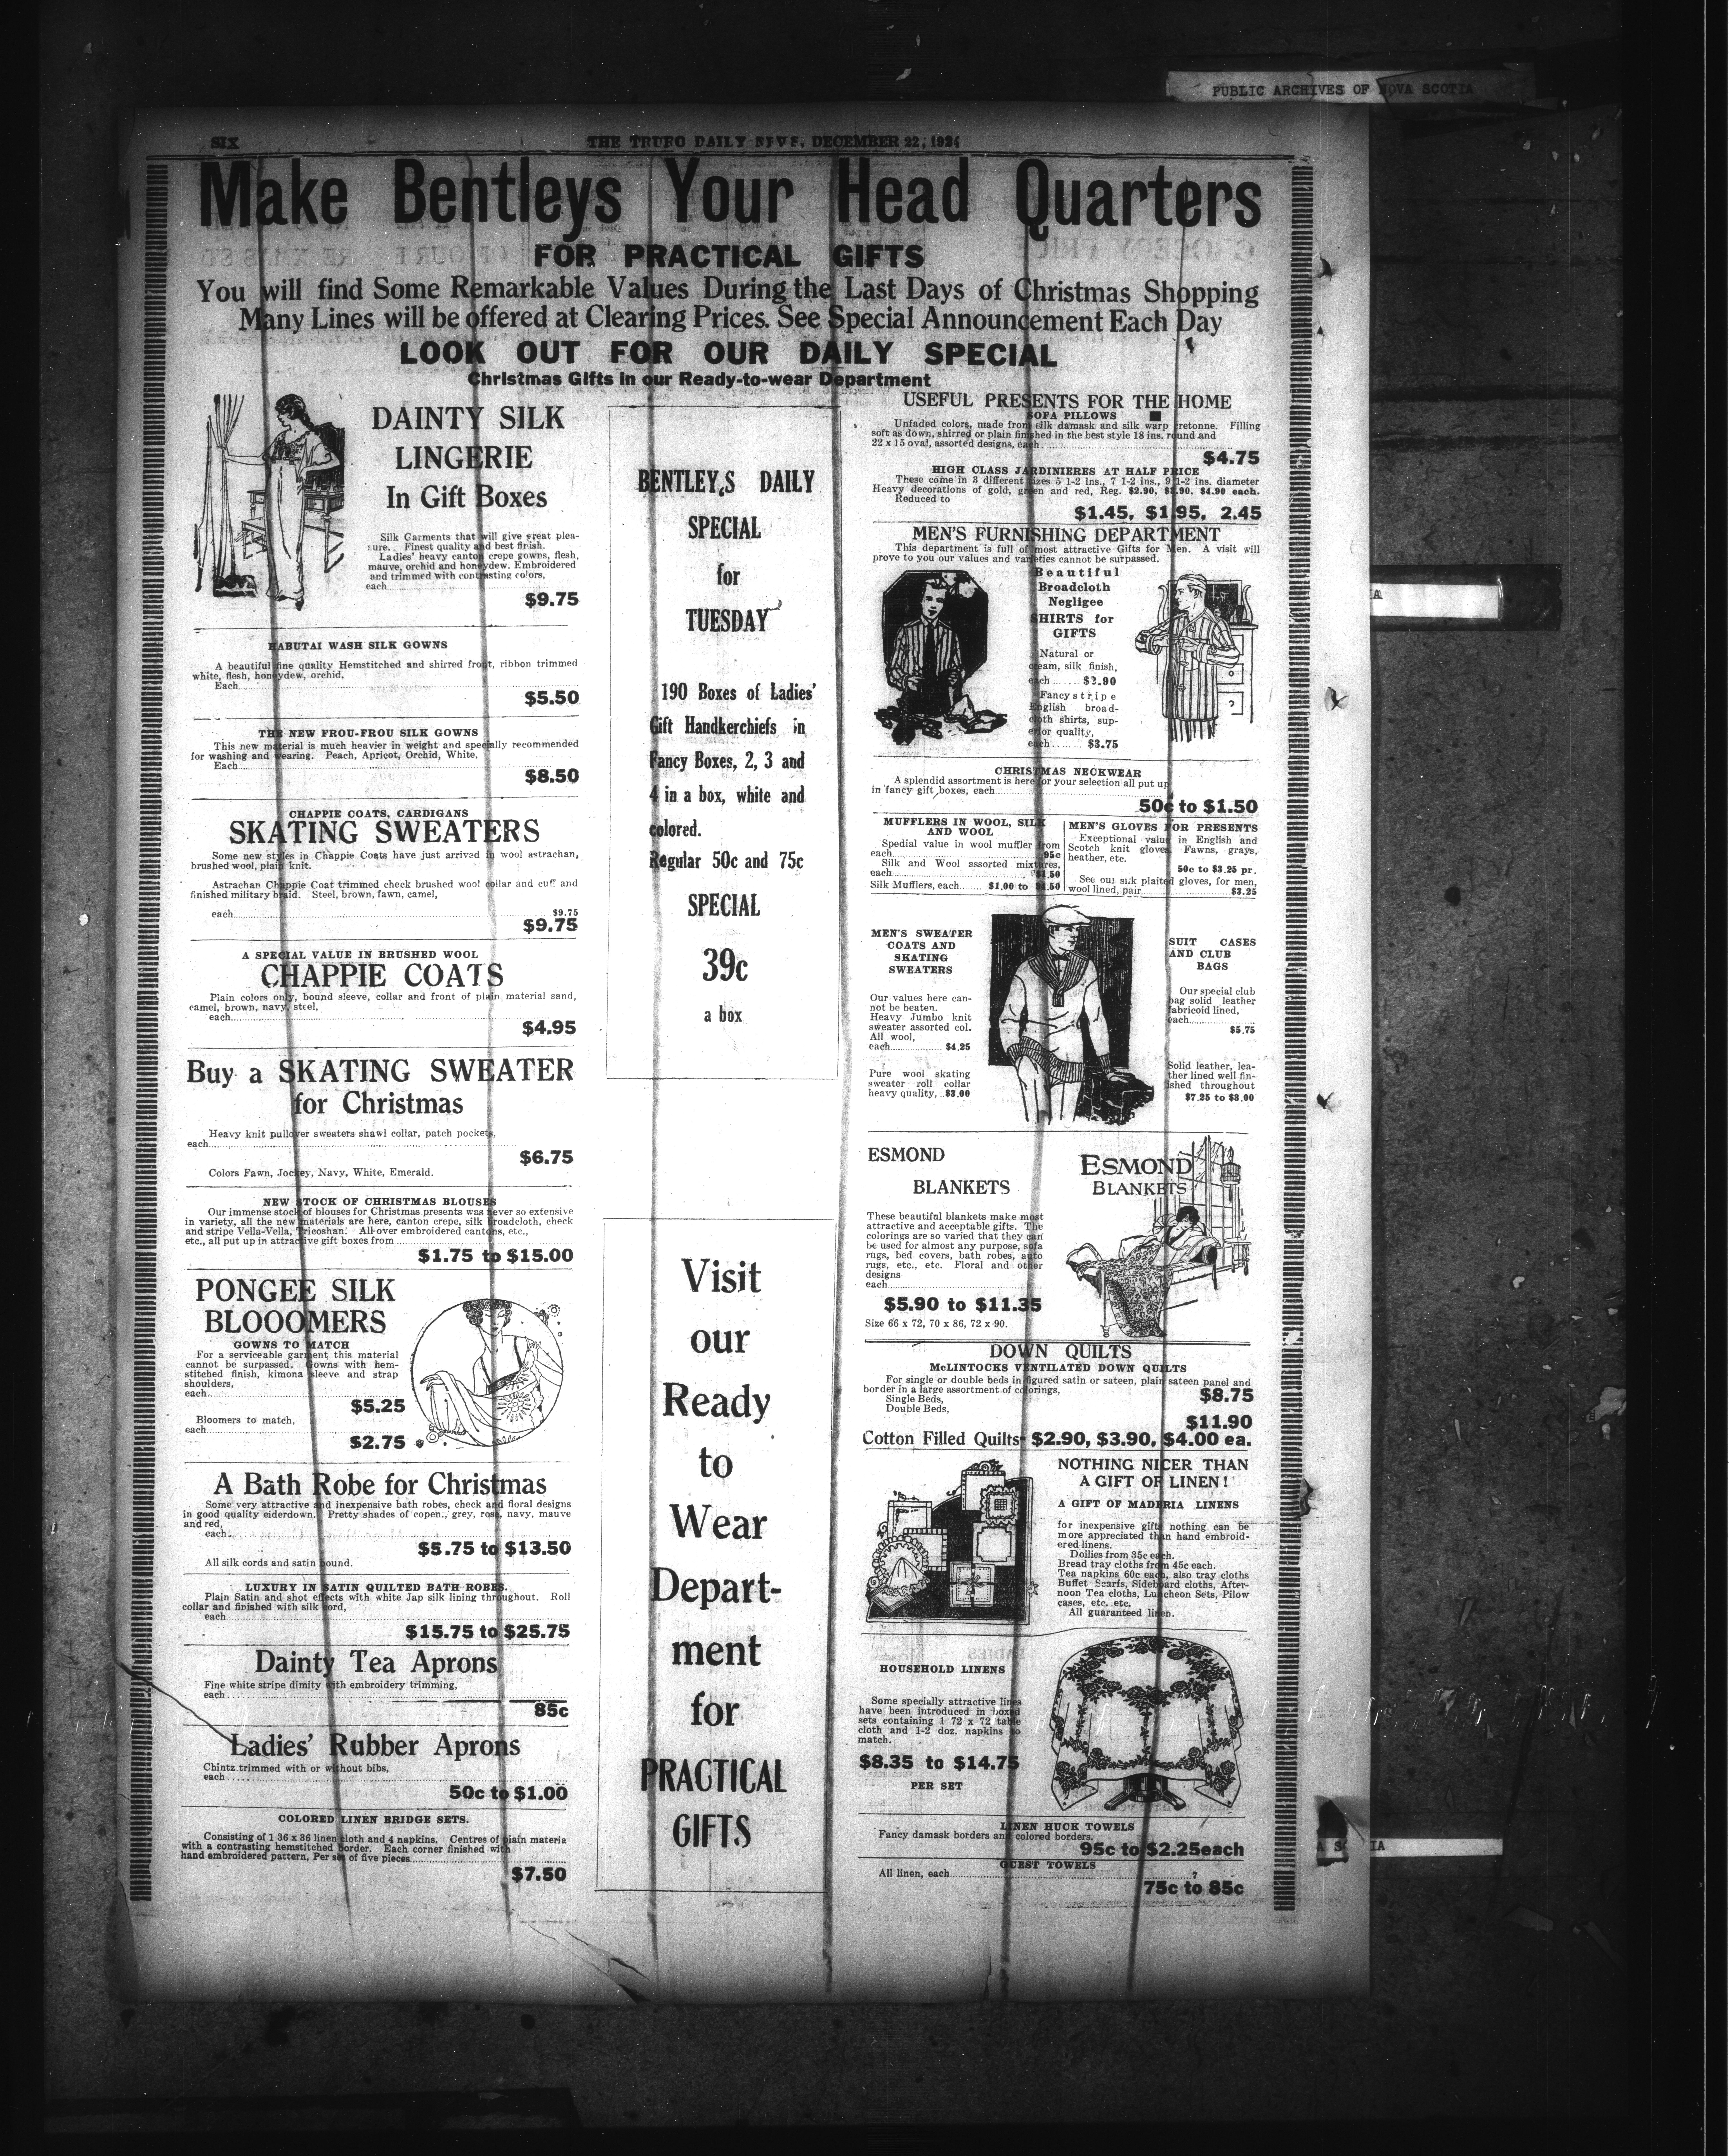 PUBLIC ARCHIVES OF NOVA SCOTIA
SIX
THE TRURO DAILY NEWS, DECEMBER 22, 1924
Make Bentleys Your Head Quarters
FOR PRACTICAL GIFTS
You will find Some Remarkable Values During the Last Days of Christmas Shopping
Many Lines will be offered at Clearing Prices. See Special Announcement Each Day
LOOK OUT FOR OUR DAILY SPECIAL
Christmas Gifts in our Ready-to-wear Department
DAINTY SILK
LINGERIE
In Gift Boxes
Silk Garments that will give great plea-
sure. Finest quality and best finish.
Ladies' heavy canton crepe gowns, flesh,
mauve, orchid and honeydew. Embroidered
and trimmed with contrasting colors,
each
$9.75
HABUTAI WASH SILK GOWNS
A beautiful fine quality Hemstitched and shirred front, ribbon trimmed
white, flesh, honeydew, orchid.
Each
$5.50
THE NEW FROU-FROU SILK GOWNS
This new material is much heavier in weight and specially recommended
for washing and wearing. Peach, Apricot, Orchid, White,
Each
$8.50
CHAPPIE COATS, CARDIGANS
SKATING SWEATERS
Some new styles in Chappie Coats have just arrived in wool astrachan,
brushed wool, plain knit.
Astrachan Chappie Coat trimmed check brushed wool collar and cuff and
finished military braid. Steel, brown, fawn, camel,
each $9.75
$9.75
A SPECIAL VALUE IN BRUSHED WOOL
CHAPPIE COATS
Plain colors only, bound sleeve, collar and front of plain material sand,
camel, brown, navy, steel,
each
$4.95
Buy a SKATING SWEATER
for Christmas
Heavy knit pullover sweaters shawl collar, patch pockets,
each
$6.75
Colors Fawn, Jockey, Navy, White, Emerald.
NEW STOCK OF CHRISTMAS BLOUSES
Our immense stock of blouses for Christmas presents was never so extensive
in variety, all the new materials are here, canton crepe, silk broadcloth, check
and stripe Vella-Vella, Tricoshan. All-over embroidered cantons, etc.,
etc., all put up in attractive gift boxes from
$1.75 to $15.00
PONGEE SILK
BLOOOMERS
GOWNS TO MATCH
For a serviceable garment this material
cannot be surpassed. Gowns with hem-
stitched finish, kimona sleeve and strap
shoulders,
each
$5.25
Bloomers to match,
each
$2.75
A Bath Robe for Christmas
Some very attractive and inexpensive bath robes, check and floral designs
in good quality eiderdown. Pretty shades of copen., grey, rose, navy, mauve
and red,
each.
$5.75 to $13.50
All silk cords and satin bound.
LUXURY IN SATIN QUILTED BATH ROBES.
Plain Satin and shot effects with white Jap silk lining throughout. Roll
collar and finished with silk cord,
each
$15.75 to $25.75
Dainty Tea Aprons
Fine white stripe dimity with embroidery trimming,
each
85c
Ladies' Rubber Aprons
Chintz trimmed with or without bibs,
each
50c to $1.00
COLORED LINEN BRIDGE SETS.
Consisting of 1 36 x 36 linen cloth and 4 napkins. Centres of plain materia
with a contrasting hemstitched border. Each corner finished with
hand embroidered pattern, Per set of five pieces
$7.50
BENTLEY,S DAILY
SPECIAL
for
TUESDAY
190 Boxes of Ladies'
Gift Handkerchiefs in
Fancy Boxes, 2, 3 and
4 in a box, white and
colored.
Regular 50c and 75c
SPECIAL
39c
a box
Visit
our
Ready
to
Wear
Depart-
ment
for
PRACTICAL
GIFTS
USEFUL PRESENTS FOR THE HOME
SOFA PILLOWS
Unfaded colors, made from silk damask and silk warp cretonne. Filling
soft as down, shirred or plain finished in the best style 18 ins. round and
22 x 15 oval, assorted designs, each
$4.75
HIGH CLASS JARDINIERES AT HALF PRICE
These come in 3 different sizes 5 1-2 ins., 7 1-2 ins., 9 1-2 ins. diameter
Heavy decorations of gold, green and red, Reg. $2.90, $3.90, $4.90 each.
Reduced to
$1.45, $1.95, 2.45
MEN'S FURNISHING DEPARTMENT
This department is full of most attractive Gifts for Men. A visit will
prove to you our values and varieties cannot be surpassed.
Beautiful
Broadcloth
Negligee
SHIRTS for
GIFTS
Natural or
cream, silk finish,
each
Fancy stripe
English broad-
cloth shirts, sup-
erior quality,
each $3.75
CHRISTMAS NECKWEAR
A splendid assortment is here for your selection all put up
in fancy gift boxes, each
50c to $1.50
MUFFLERS IN WOOL, SILK
AND WOOL
Spedial value in wool muffler from
each 95c
Silk and Wool assorted mixtures,
each $1.50
Silk Mufflers, each $1.00 to $4.50
MEN'S GLOVES FOR PRESENTS
Exceptional value in English and
Scotch knit gloves. Fawns, grays,
heather, etc.
50c to $3.25 pr.
See our silk plaited gloves, for men,
wool lined, pair $3.25
MEN'S SWEATER
COATS AND
SKATING
SWEATERS
Our values here can-
not be beaten.
Heavy Jumbo knit
sweater assorted col.
All wool,
each $4.25
Pure wool skating
sweater roll collar
heavy quality, $3.00
SUIT CASES
AND CLUB
BAGS
Our special club
bag solid leather
fabricoid lined,
each
$5.75
Solid leather, lea-
ther lined well fin-
ished throughout
$7.25 to
ESMOND
BLANKETS
These beautiful blankets make most
attractive and acceptable gifts. The
colorings are so varied that they can
be used for almost any purpose, sofa
rugs, bed covers, bath robes, auto
rugs, etc., etc. Floral and other
designs
each
$5.90 to $11.35
Size 66 x 72, 70 x 86, 72 x 90.
ESMOND
BLANKETS
DOWN QUILTS
McLINTOCKS VENTILATED DOWN QUILTS
For single or double beds in figured satin or sateen, plain sateen panel and
border in a large assortment of colorings,
Single Beds, $8.75
Double Beds,
$11.90
Cotton Filled Quilts $2.90, $3.90, $4.00 ea.
NOTHING NICER THAN
A GIFT OF LINEN!
A GIFT OF MADERIA LINENS
for inexpensive gifts nothing can be
more appreciated than hand embroid-
ered linens.
Doilies from 35c each.
Bread tray cloths from 45c each.
Tea napkins 60c each, also tray cloths
Buffet Scarfs, Sideboard cloths, After-
noon Tea cloths, Luncheon Sets, Pilow
cases, etc. etc.
All guaranteed linen.
HOUSEHOLD LINENS
Some specially attractive lines
have been introduced in boxed
sets containing 1 72 x 72 table
cloth and 1-2 doz. napkins to
match.
$8.35 to $14.75
PER SET
LINEN HUCK TOWELS
Fancy damask borders and colored borders.
95c to $2.25each
GUEST TOWELS
All linen, each
75c to 85c